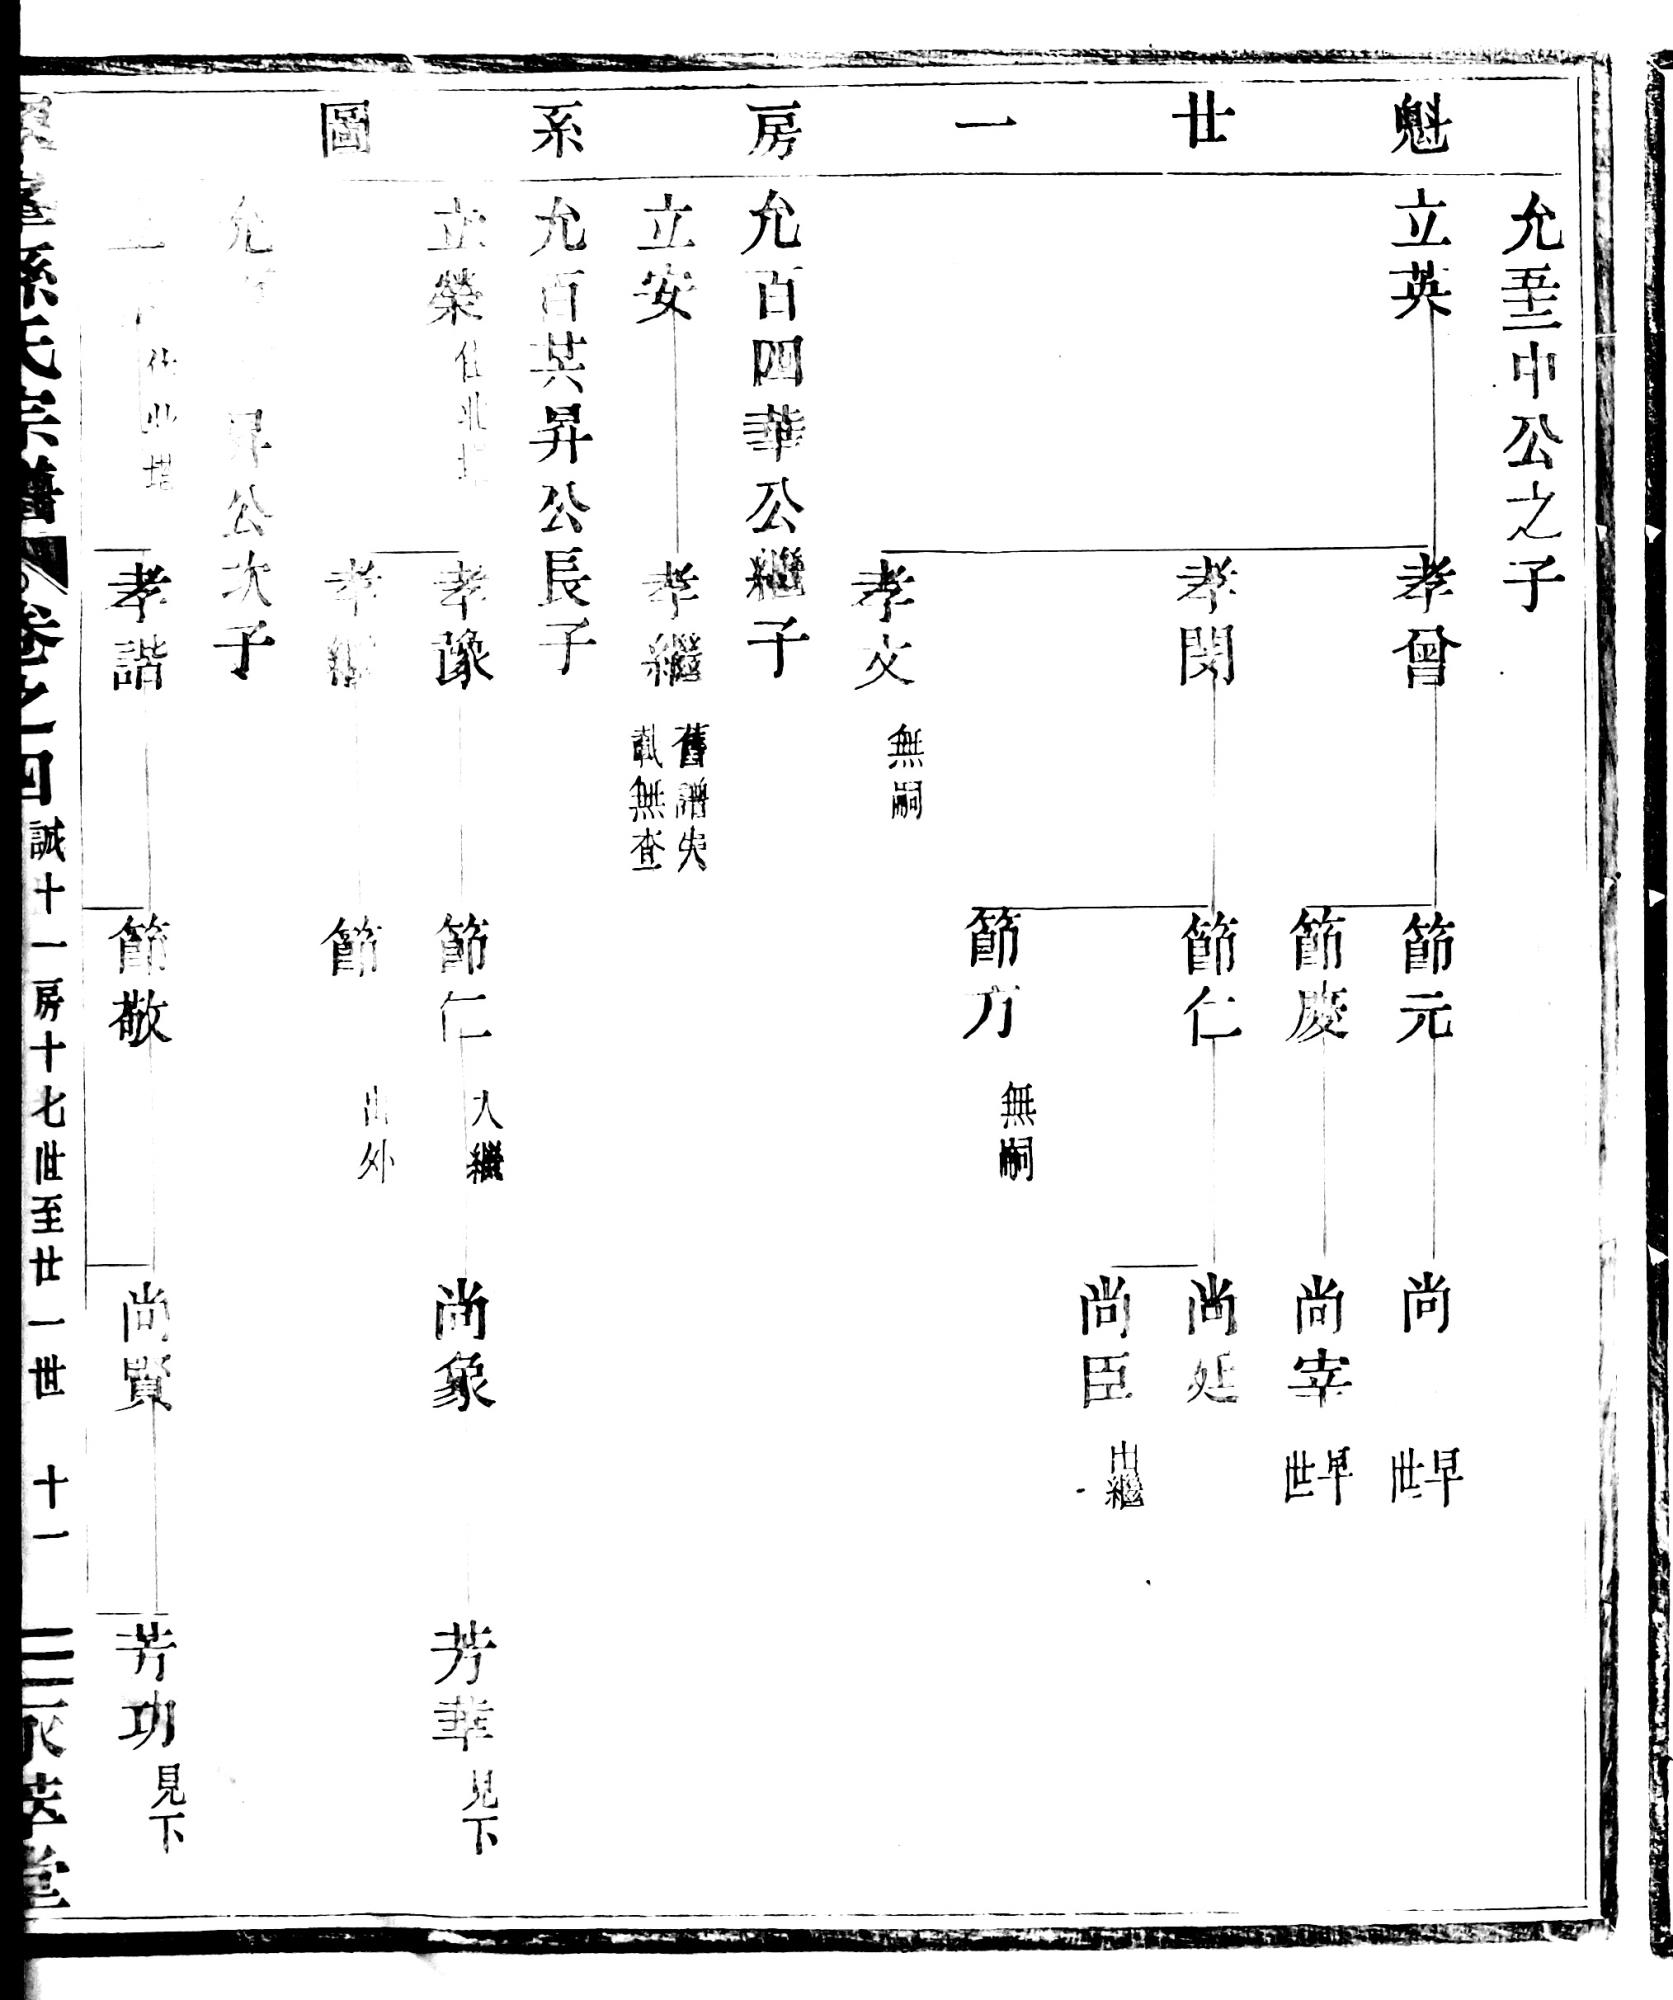 魁廿一房系圖
允五十三中公之子
立英
孝曾
節元
尚
早世
節慶
尚宰
早世
孝閔
節仁
尚延
尚臣
出繼
節方
無嗣
孝文
無嗣
允百四華公繼子
立安
孝繼
舊譜失
載無查
允百共昇公長子
立榮
孝豫
節仁
入繼
尚象
芳華
見下
孝
節
出外
昇公次子
孝諧
節敬
尚賢
芳功
見下
孫氏宗譜
卷之四
誠十一房十七世至廿一世
十一